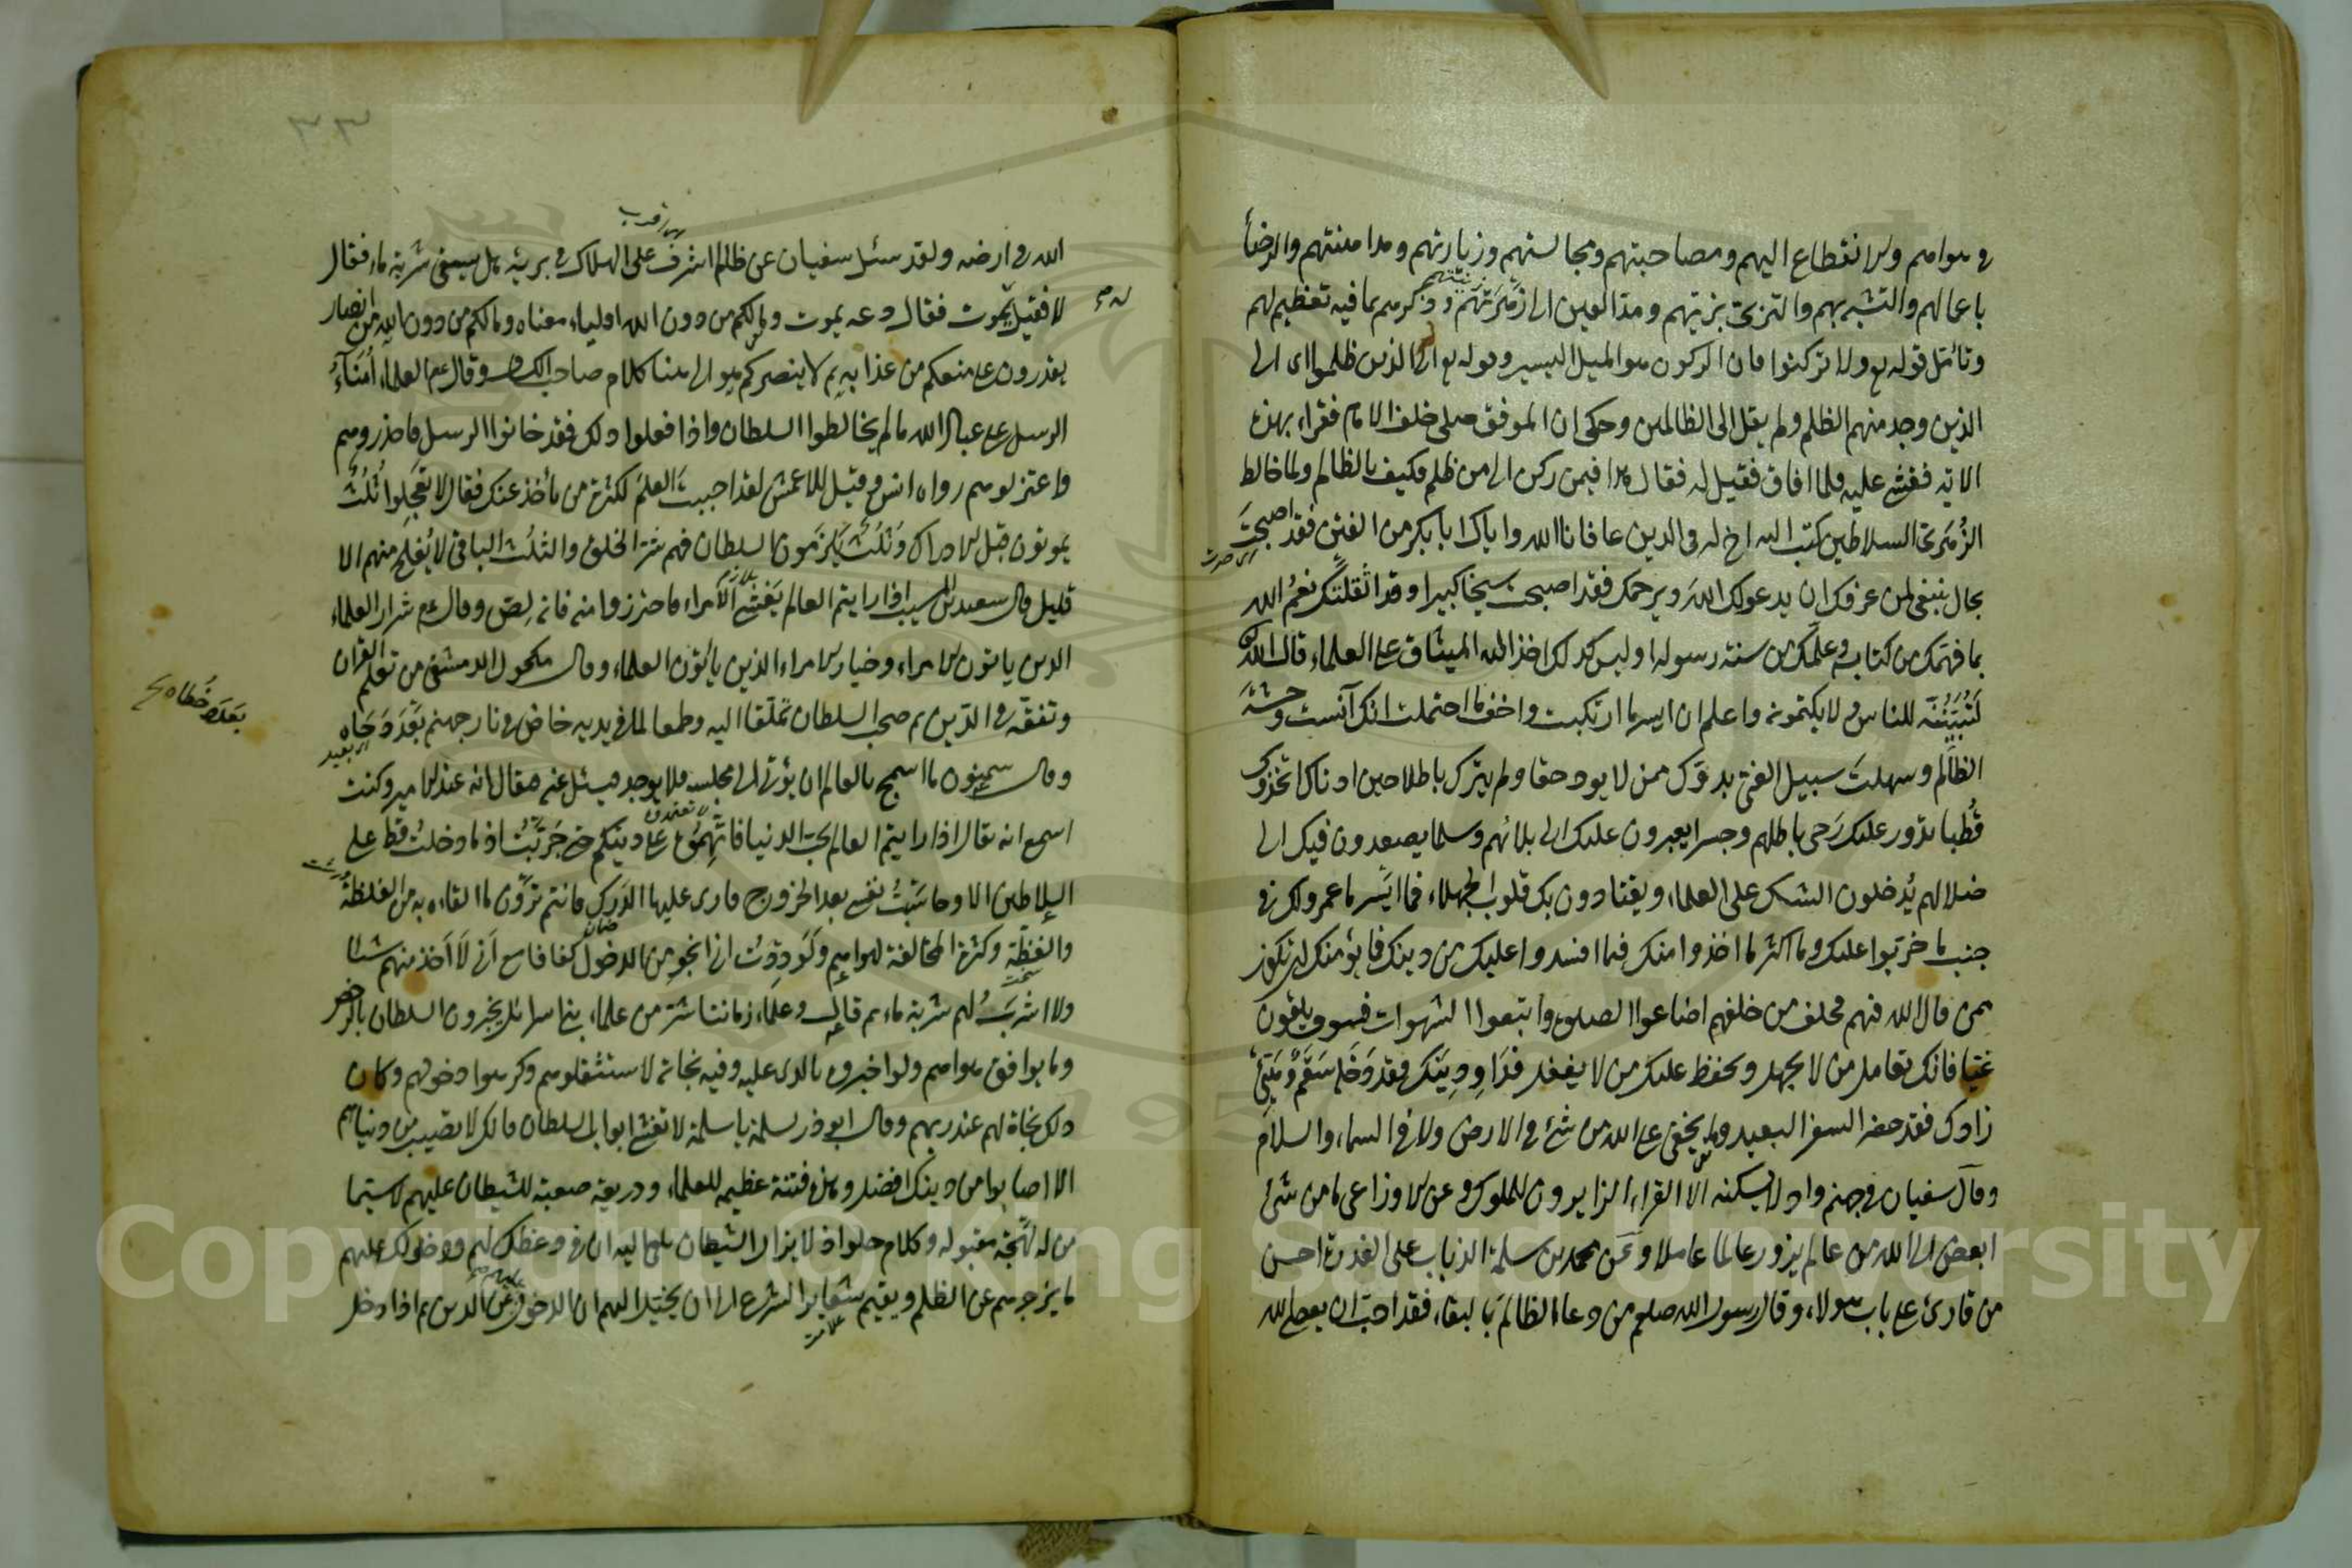 في هواهم والانقطاع اليهم ومصاحبتهم ومجالستهم وزيارتهم ومداهنتهم والرضأ
باعمالهم والتشبه بهم والتزيّ بزيّهم ومدّ العين الى زَهْرَتِهم وذكرهم بما فيه تعظيم لهم
وتأمّل قوله تع ولا تركنوا فان الركون هو الميل اليسير وقوله تع الى الذين ظلموا اى الى
الذين وجد منهم الظلم ولم يقل الى الظالمين وحكى ان الموفق صلى خلف الامام فقراء بهذه
الاية فغشى عليه فلما افاق فقيل له فقال هذا فيمن ركن الى من ظلم فكيف بالظالم ولما خالط
الزُهْرىّ السلاطين كتب اليه اخ له في الدين عافانا الله واياك ابا بكر من الفتن فقد اصبحتَ
بحال ينبغى لمن عرفك ان يدعو لك اللهَ ويرحمك فقد اصبحت شيخا كبيرا وقد اثقلتك نعمُ الله
بما فهّمك من كتابه وعلّمك من سنة رسوله وليس كذلك اخذ الله الميثاق على العلماء قال الله
لَتُبَيِّنُنَّه للناس ولا يكتمونه واعلم ان ايسر ما ارتكبت واخف ما احتملت انك آنست وحشةَ
الظالم وسهلتَ سبيل الغى بدنوّك ممن لا يود حقا ولم يترك باطلا حين ادناك اتخذوك
قُطبا تدور عليك رَحى باطلهم وجسرا يعبرون عليك الى بلائهم وسلما يصعدون فيك الى
ضلالهم يُدخلون الشك على العلماء ويقتادون بك قلوب الجهلاء فما ايسَر ما عمروا لك في
جنب ما خربّوا عليك وما اكثر ما اخذوا منك فيما افسدوا عليك من دينك فما يؤمنك ان تكون
ممن قال الله فيهم فخلف من خلفهم اضاعوا الصلوة واتبعوا الشهوات فسوف يلقون
غيّا فانك تعامل من لا يجهل ويحفظ عليك من لا يغفل فدَاوِ دِينَك فقد دَخَله سَقَم وهَيّئ
زادك فقد حضر السفر البعيد وما يخفى على الله من شئ في الارض ولا في السماء والسلام
وقال سفيان في جهنم واد لا يسكنه الا القراء الزايرون للملوك وعن الاوزاعى ما من شئ
ابغض الى الله من عالم يزور عاملا وعَن محمد بن سلمة الذباب على العذرة احسن
من قارئ على باب هولاء وقال رسول الله صلعم من دعا لظالم بالبقاء فقد احبّ ان يعصى الله
الله في ارضه ولقد سئل سفيان عن ظالم اشرف على الهلاك في برية هل يسقى شربة ماء فقال
لا فقيل يموت فقال دعه يموت ومالكم من دون الله اولياء معناه ومالكم من دون الله من انصار
يقدرون على منعكم من عذابه ثم لا ينصركم هو الى هنا كلام صاحب الكشاف وقال عم العلماء أمناءُ
الرسل على عباد الله مالم يخالطوا السلطان واذا فعلوا ذلك فقد خانوا الرسل فاحذروهم
واعتزلوهم رواه انس وقيل للاعمش لقد احييت العلمَ لكثرة من ياخذ عنك فقال لا تعجلوا ثُلُثٌ
يموتون قبل الادراك وَثُلُثٌ يَلزَمون السلطان فهم شرّ الخلق والثلُث الباقى لا يُفلح منهم الا
قليل وقال سعيد بن المسيب اذا رايتم العالم يَغشى الأمراء فاحترزوا منه فانه لِصّ وقال عم شرار العلماء
الذين ياتون الامراء وخيار الامراء الذين ياتون العلماء وقال مكحول الدمشقى من تعلّم القران
وتفقّه في الدّين ثم صحب السلطان تملّقا اليه وطمعا لما في يديه خاض في نار جهنم بعدد خُطاه
بعدد خُطاه صح
وقال سمنون ما اسمج بالعالم ان يؤتى الى مجلسه فلا يوجد فيسئل عنه فيقال انه عند الامير وكنت
اسمع انه يقال اذا رايتم العالم يحبّ الدنيا فاتّهِموُه على دينكم حتى جَرّبتُ اذ ما دخلتُ قط على
السلاطين الا وحاسَبْتُ نفسى بعد الخروج فارى عليها الدَرَك فانتم تَرَوْن ما القاه به من الغلظة
والفظّة وكثرة المخالفة لهواهم ولَوَدِدْت انى انجو من الدخول كفافا مع اَنى لا آخذ منهم شيئا
ولا اشربُ لهم شربة ماء ثم قال وعلماء زماننا شرّ من علماء بنى اسرائل يخبرون السلطان بالرخص
وما يوافق هواهم ولو اخبروه بالذى عليه وفيه نجاته لاستثقلوهم وكرهوا دخولهم وكان
ذلك نجاة لهم عند ربهم وقال ابو ذر لسلمة ياسلمة لا تغش ابواب السلطان فانك لا تصيب من دنياهم
الا اصابوا من دينك افضل وهذه فتنة عظيمه للعلماء وذريعة صعبة للشيطان عليهم لاسيّما
من له لهجة مقبوله وكلام حلو اذ لا يزال الشيطان يلقى اليه ان في وعظك لهم ودخولك عليهم
ما يزجرهم عن الظلم ويقيم شعاير الشرع الى ان يخيّل اليهم ان الدخول عليهم من الدين ثم اذا دخل